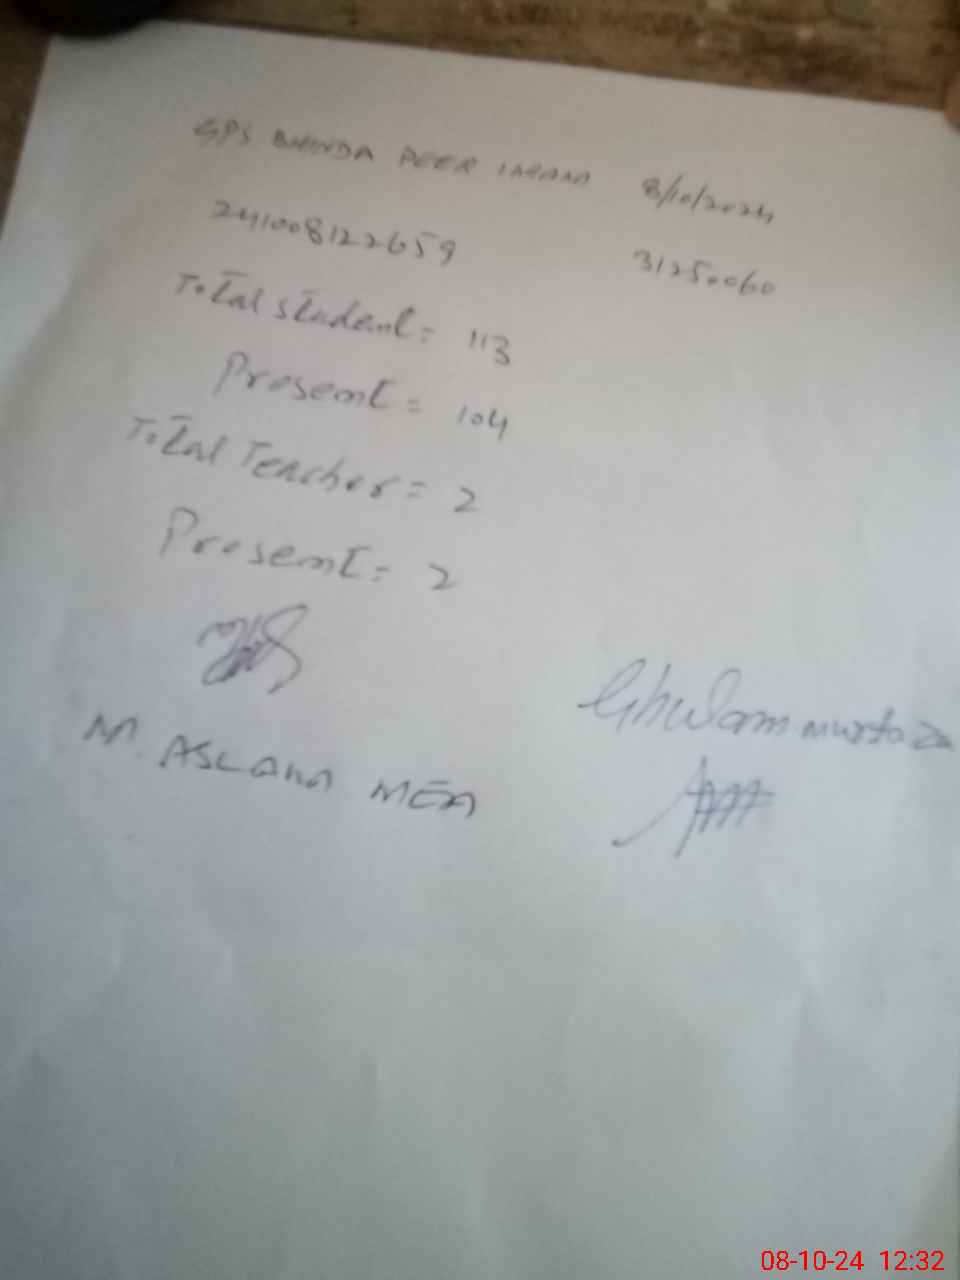 GPS BHINDA PEER IMAM 8/10/2024
241008122659 31250060
Total student = 113
Present = 104
Total Teacher = 2
Present = 2
Ghulam murtaza
M. ASLAM MEA
08-10-24 12:32